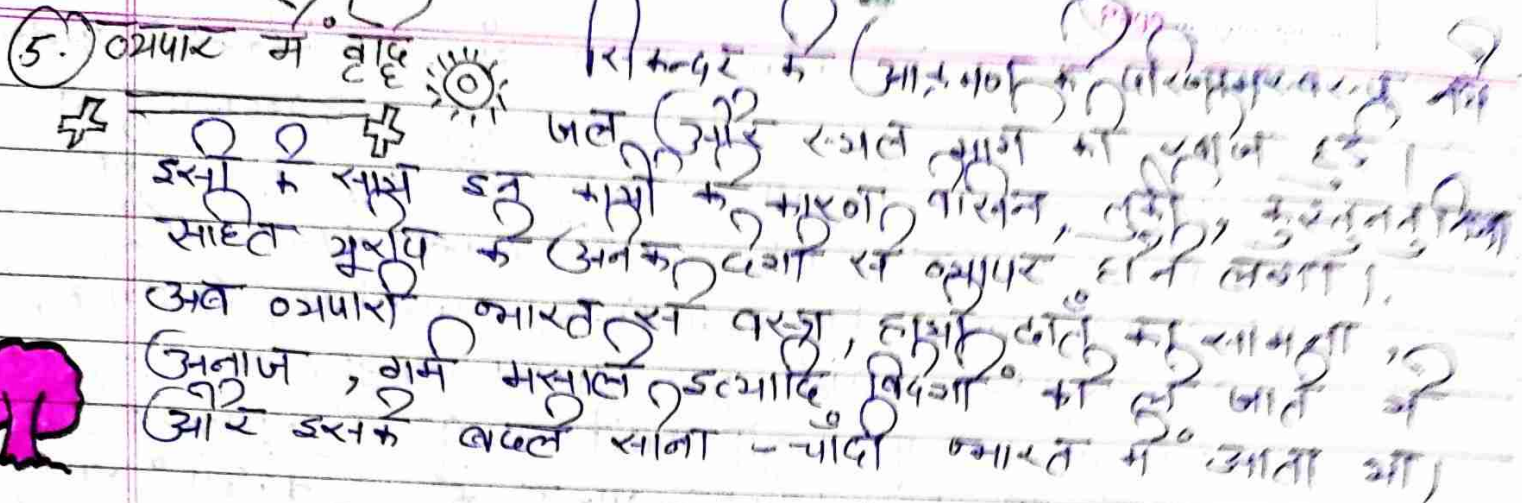 5. व्यपार में वृद्धि सिकन्दर के आक्रमण के परिणामस्वरूप नये
जल और स्थल मार्ग की खोज हुई।
इसी के साथ इन मार्गो के कारण वेरिवन, तुर्की, कुस्तुनतुनिया
सहित यूरोप के अनेक देशों से व्यापर होने लगा।
अब व्यपारी भारत से वस्त्र, हाथी दाँत का सामग्री,
अनाज, गर्म मसाले इत्यादि विदेशों को ले जाते थे
और इसके बदले सोना - चाँदी भारत में आता था।